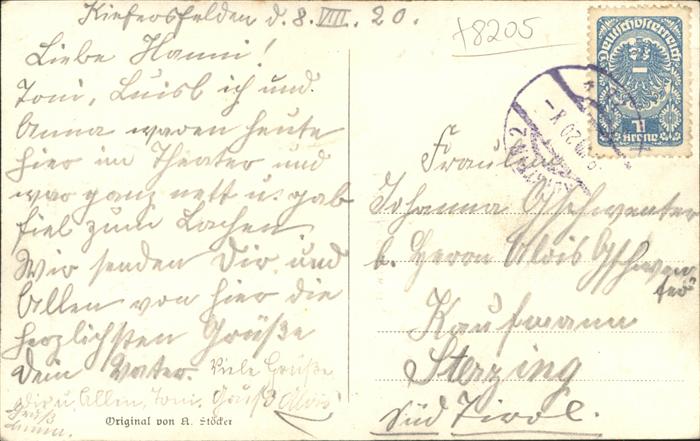 Kiefersfelden d. 8. VIII. 20.
Liebe Hanni!
Toni, Luisl ich und
Anna waren heute
hier im Theater und
war ganz nett u. gab
fiel zum Lachen
Wir senden Dir und
Allen von hier die
herzlichsten Grüße
Dein Vater. Viele Grüße
Dir u. Allen, Toni. Gruß Alois
Gruß
Anna.
Original von A. Stöcker
+8205
Deutschösterreich
1
Krone
Fräulein
Johanna Gschwenter
b. Herrn Alois Gschwen
ter
Kaufmann
Sterzing
Süd Tirol.